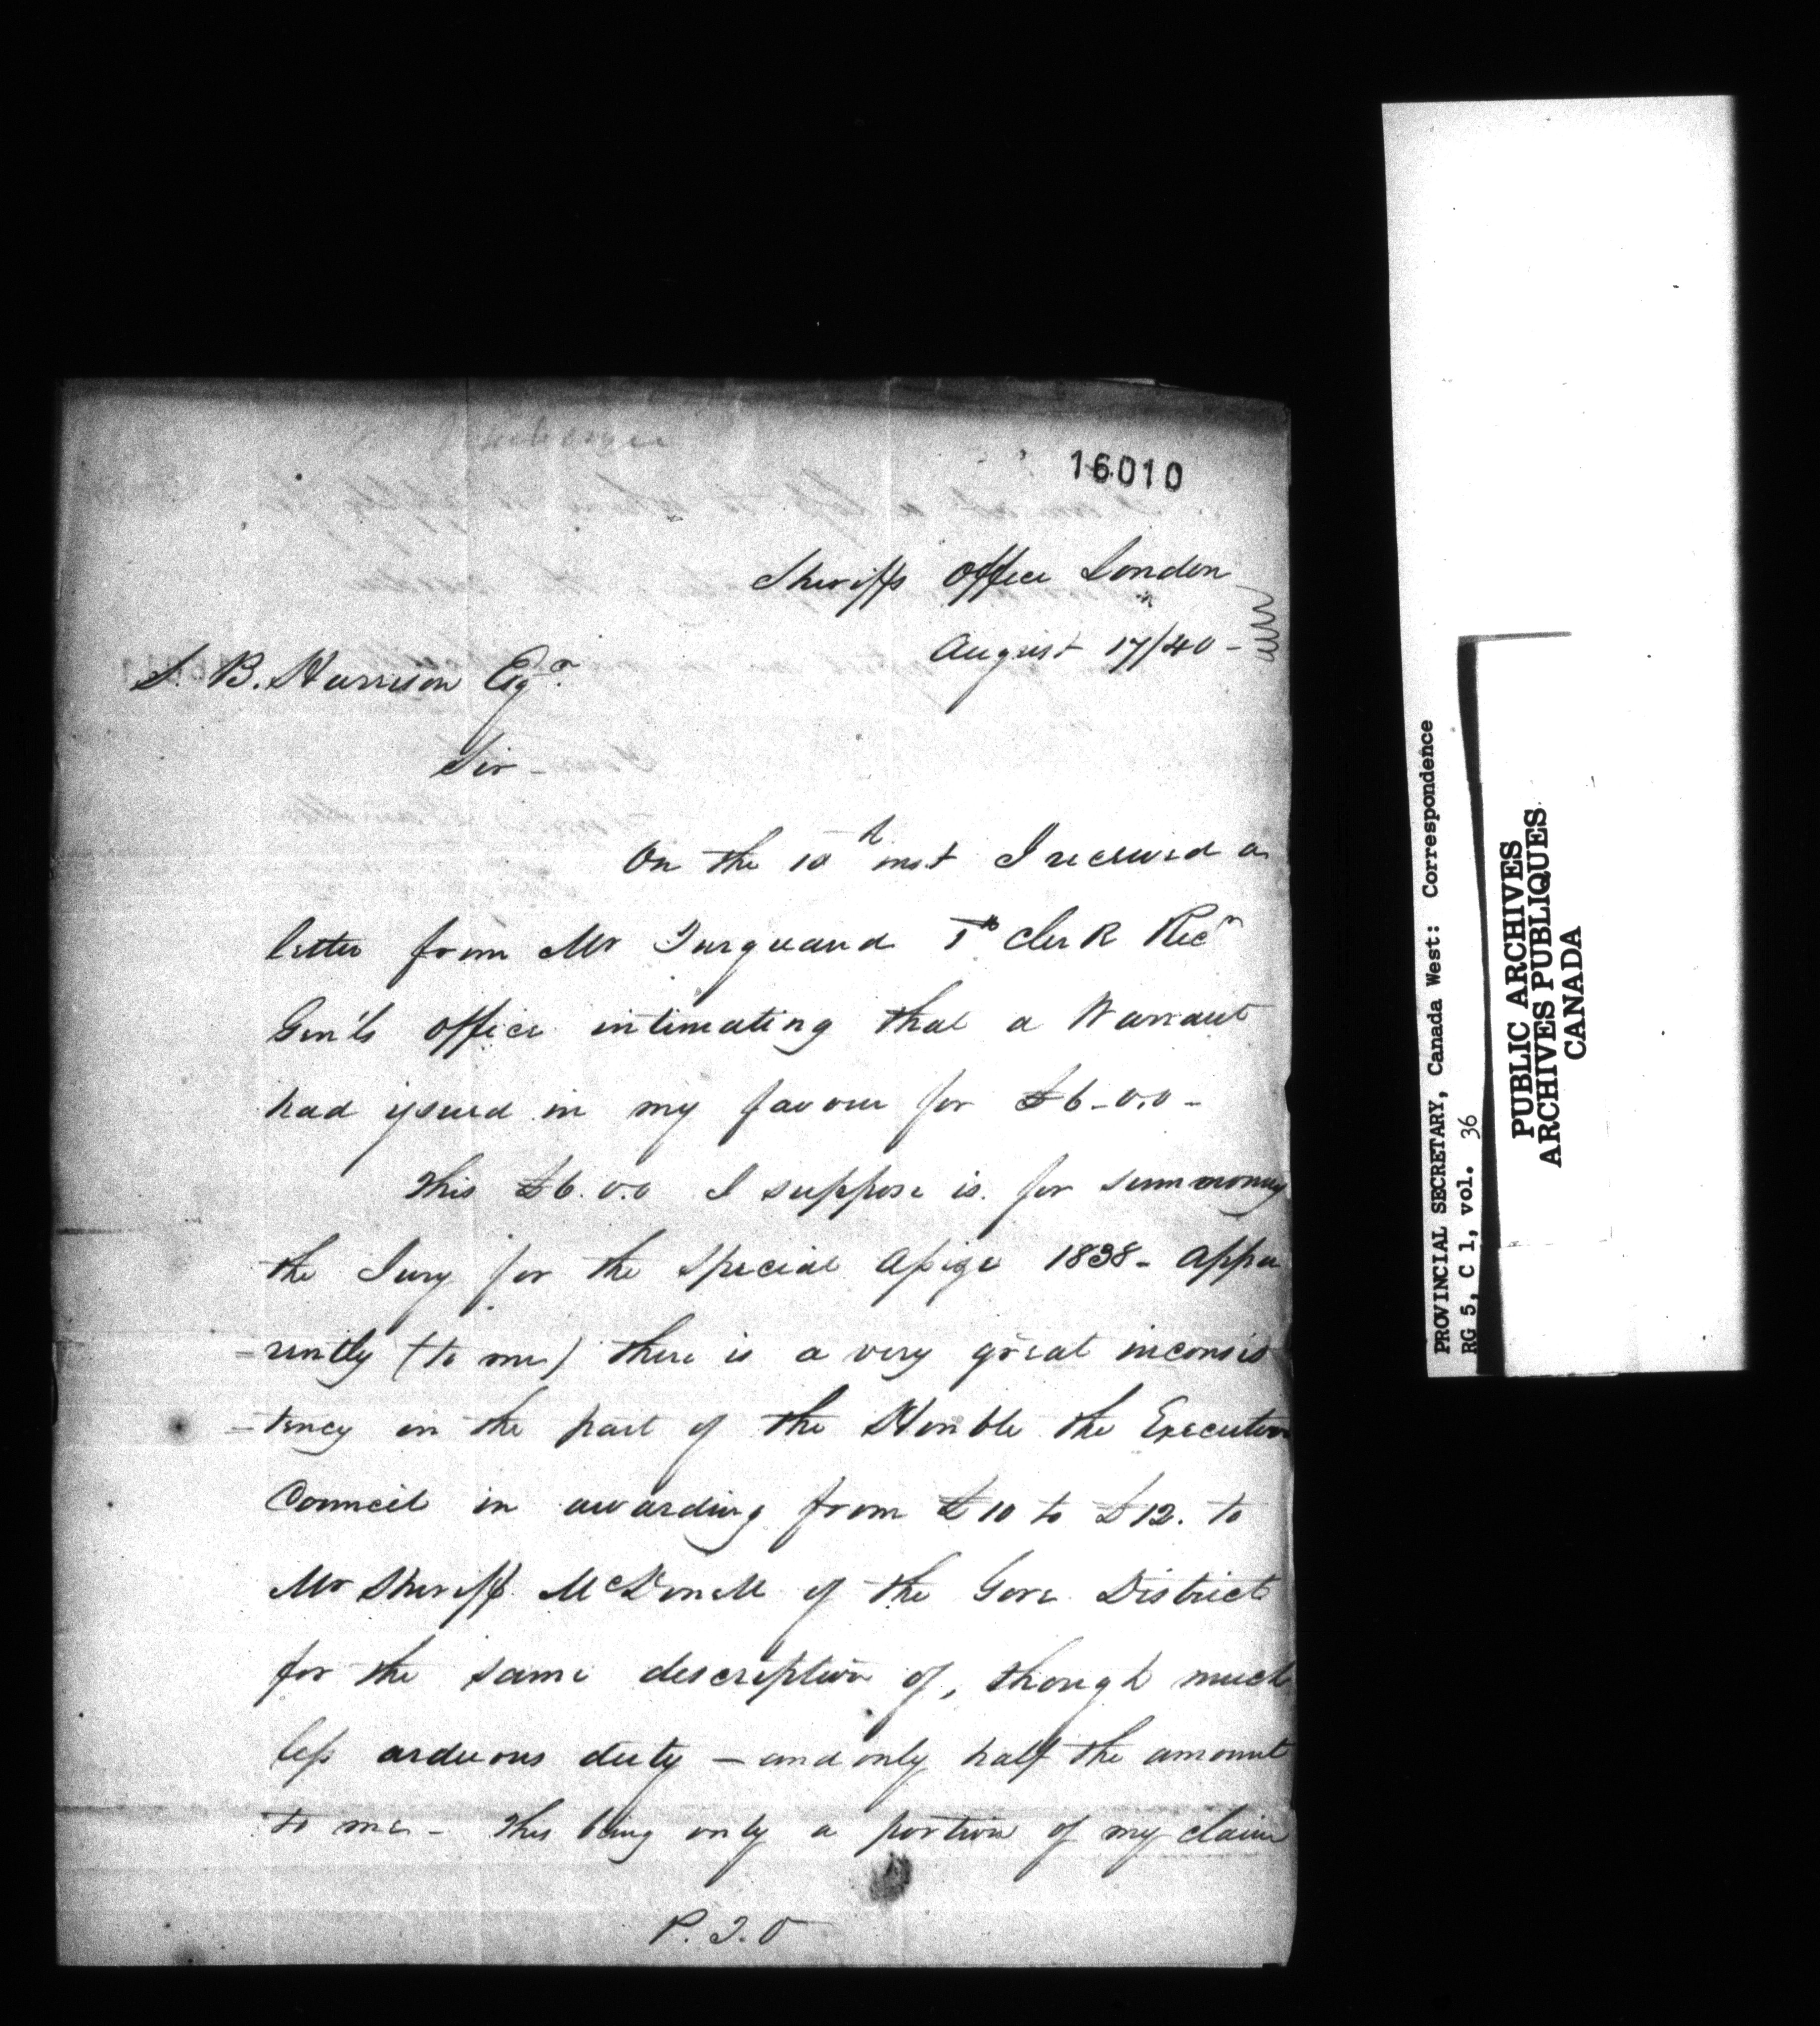 16010
Sheriffs Office London
August 17/40 -
S. B. Harrison Esqr.
Sir -
On the 10th inst I received a
letter from Mr Turquand 1st Clerk Recr
Gen'ls Office intimating that a Warrant
had issued in my favour for £6-0.0-
This £6.0.0 I suppose is for summoning
the Jury for the Special Assize 1838- appa
=rently (to me) there is a very great inconsis
=tency on the part of the Honble the Executive
Council in awarding from £10 to £12. to
Mr Sheriff McDonell of the Gore District
for the same description of, though much
less arduous duty - and only half the amount
to me - this being only a portion of my claim
P.T.O
PROVINCIAL SECRETARY, Canada West: Correspondence
RG 5, C 1, vol. 36
PUBLIC ARCHIVES
ARCHIVES PUBLIQUES
CANADA